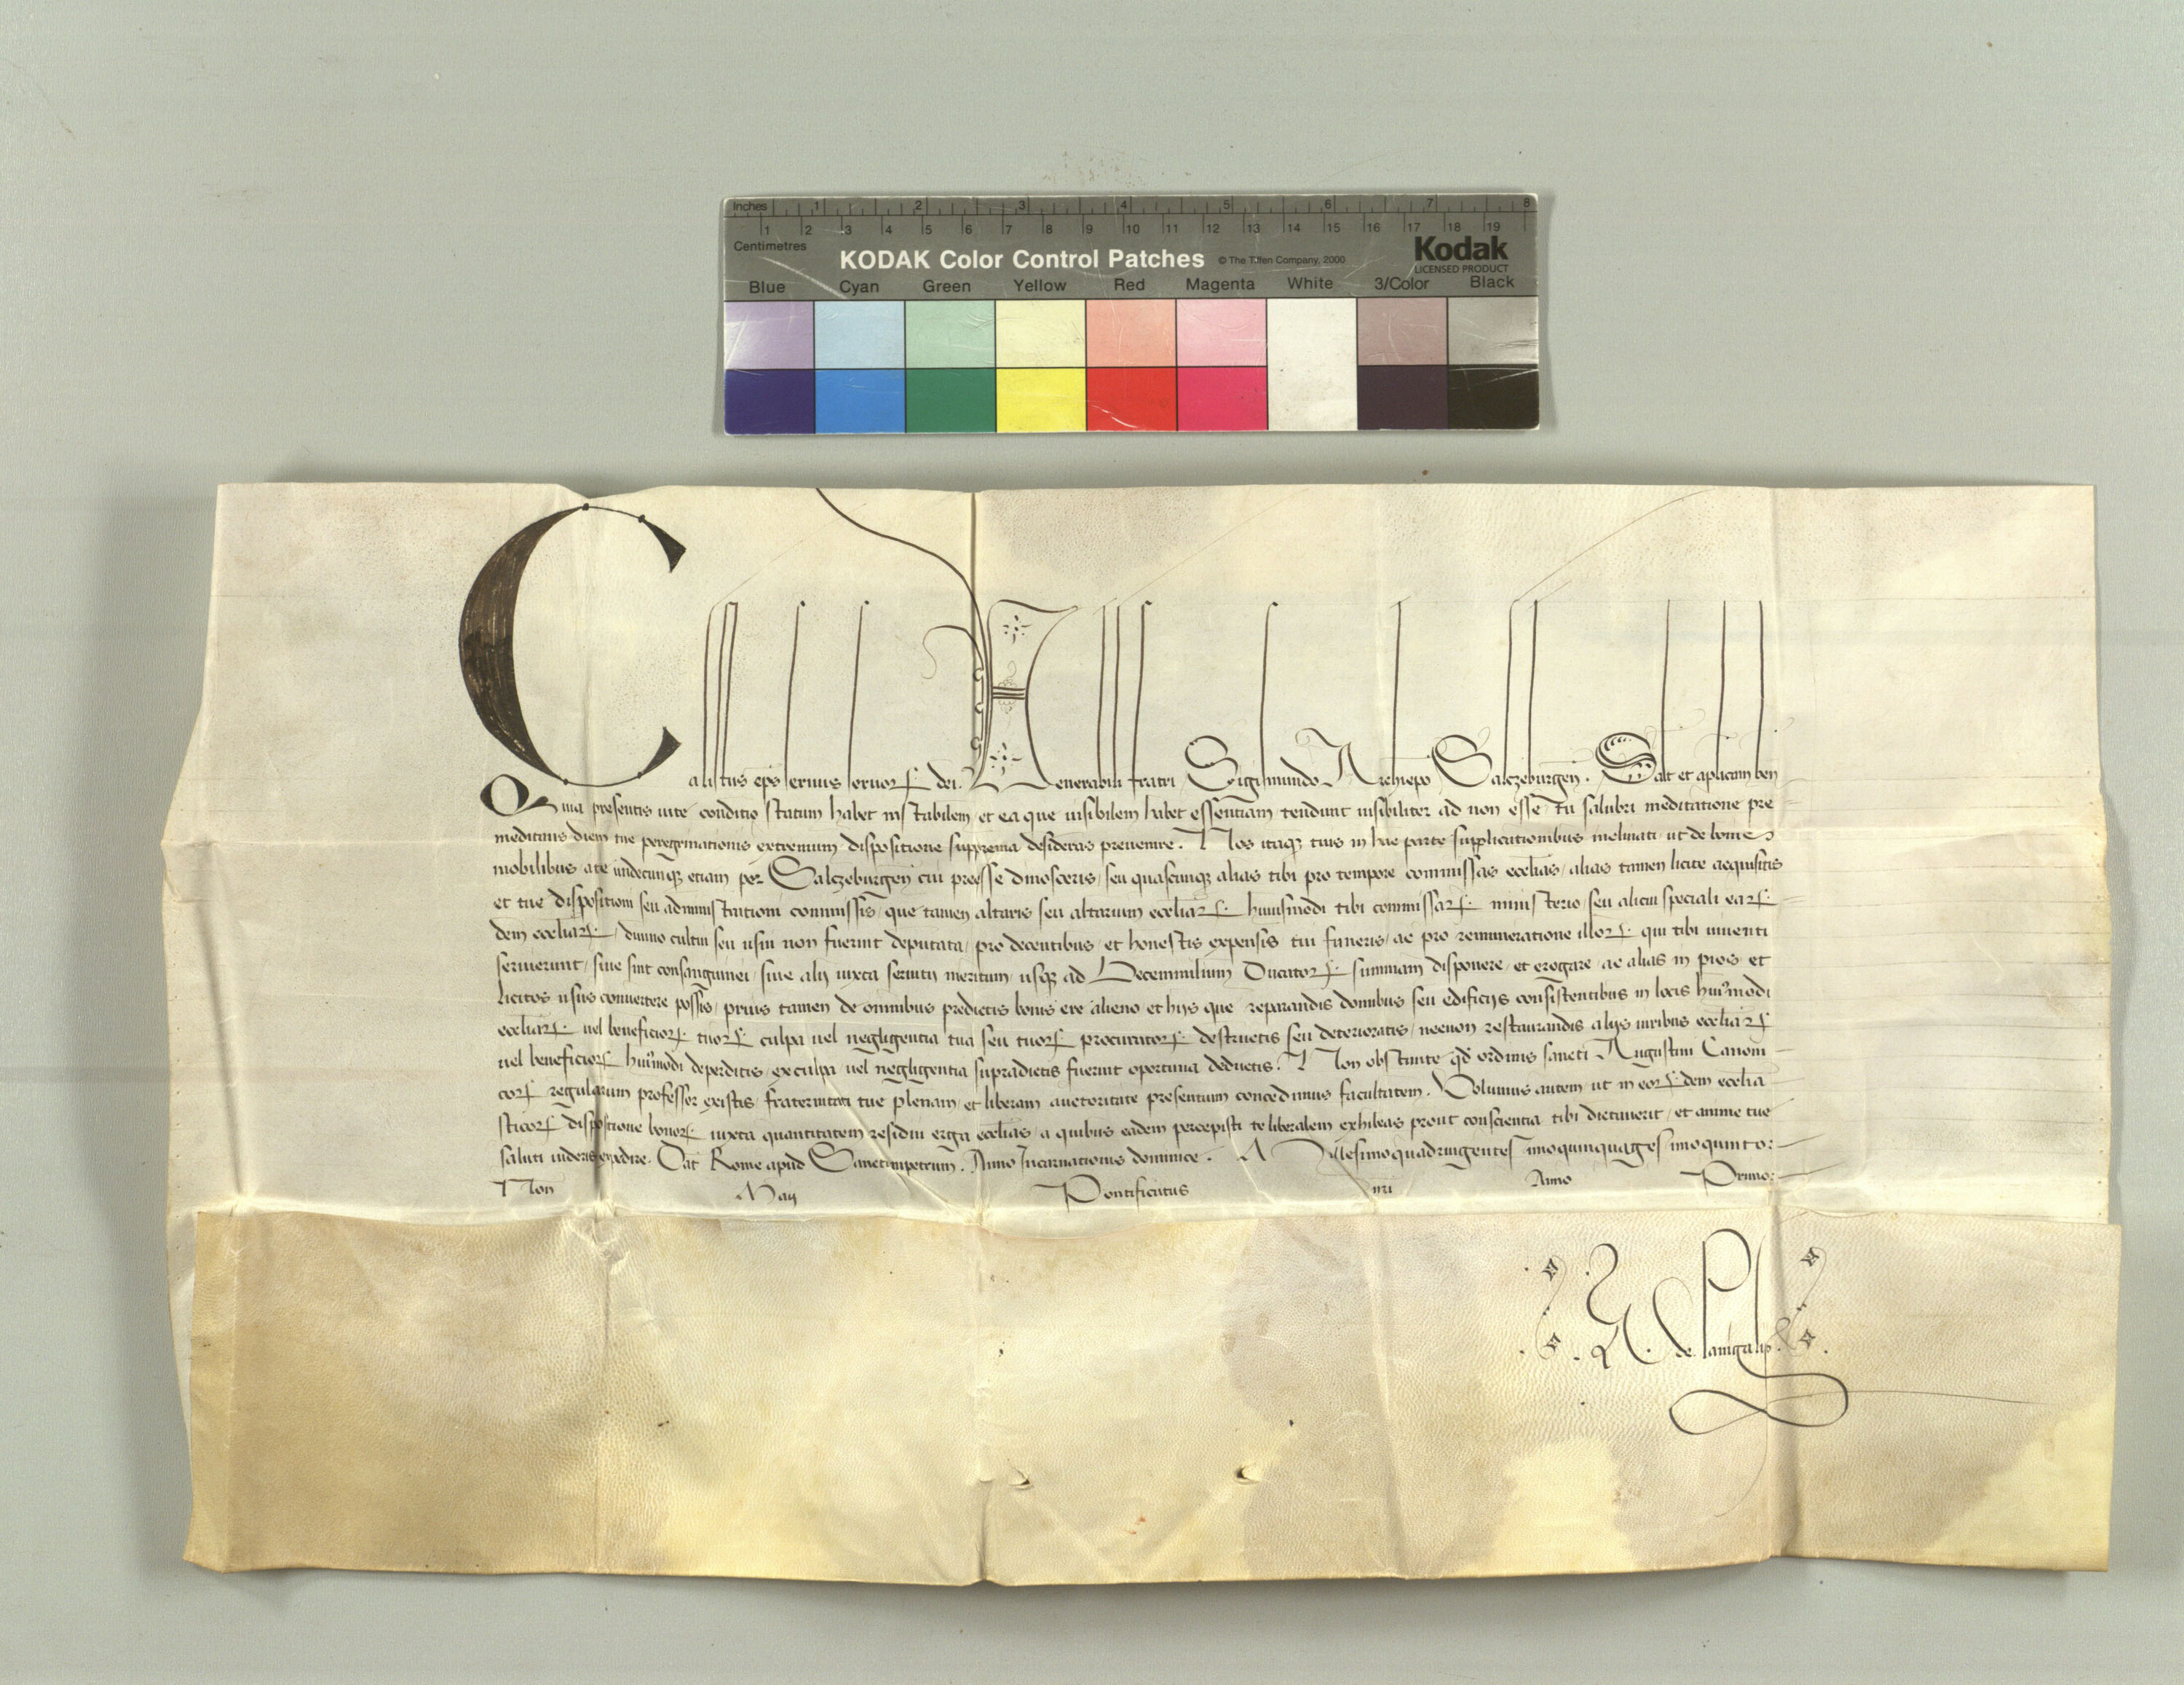 Inches 1 2 3 4 5 6 7 8
1 2 3 4 5 6 7 8 9 10 11 12 13 14 15 16 17 18 19
Centimetres
KODAK Color Control Patches © The Tiffen Company, 2000 Kodak
LICENSED PRODUCT
Blue Cyan Green Yellow Red Magenta White 3/Color Black
Calistus ep̄s seruus seruorꝝ dei. Venerabili fratri Sigismundo Archiepō Salczeburgeñ. Salt̄ et aplicam ben̄
Quia presentis uite conditio statum habet instabilem et ea que uisibilem habet essentiam tendunt inuisibiliter ad non esse tu salubri meditatione pre
meditans diem tue peregrinationis extremum dispositione supprema desideras preuenire. Nos itaqꝫ tuis in hac parte supplicationibus inclinati ut de bonis
mobilibus a te undecunqꝫ etiam per Salczeburgeñ cui preesse dinosceris seu quascunqꝫ alias tibi pro tempore commissas ecclias alias tamen licite acquisitis
et tue dispositioni seu administrationi commissis que tamen altaris seu altarium eccliarꝝ huiusmodi tibi commissarꝝ ministerio seu alicui speciali earꝝ
dem eccliarꝝ diuino cultui seu usui non fuerint deputata pro decentibus et honestis expensis tui funeris ac pro remuneratione illorꝝ qui tibi uiuenti
seruierunt siue sint consanguinei siue alij iuxta seruitij meritum usqꝫ ad Decemmilium Ducatorꝝ summam disponere et erogare ac alias in pios et
licitos usus conuertere possis prius tamen de omnibus predictis bonis ere alieno et hijs que reparandis domibus seu edificijs consistentibus in locis hmōi
eccliarꝝ uel beneficiorꝝ tuorꝝ culpa uel negligentia tua seu tuorꝝ procuratorꝝ destructis seu deterioratis necnon restaurandis alijs iuribus eccliarꝝ
uel beneficiorꝝ hmōi deperditis ex culpa uel negligentia supradictis fuerint oportuna deductis. Non obstante qd̄ ordinis sancti Augustini Canoni
corꝝ regularium professor existis fraternitati tue plenam et liberam auctoritate presentium concedimus facultatem. Volumus autem ut in eorꝝdem ecclia
sticorꝝ dispositione bonorꝝ iuxta quantitatem residui erga ecclias a quibus eadem percepisti te liberalem exhibeas prout conscientia tibi dictauerit et anime tue
saluti uideris expedire. Dat̄ Rome apud Sanctumpetrum. Anno Incarnationis dominice. Millesimoquadringentesimoquinquagesimoquinto:
Noñ Maij Pontificatus nr̄i Anno Primo: